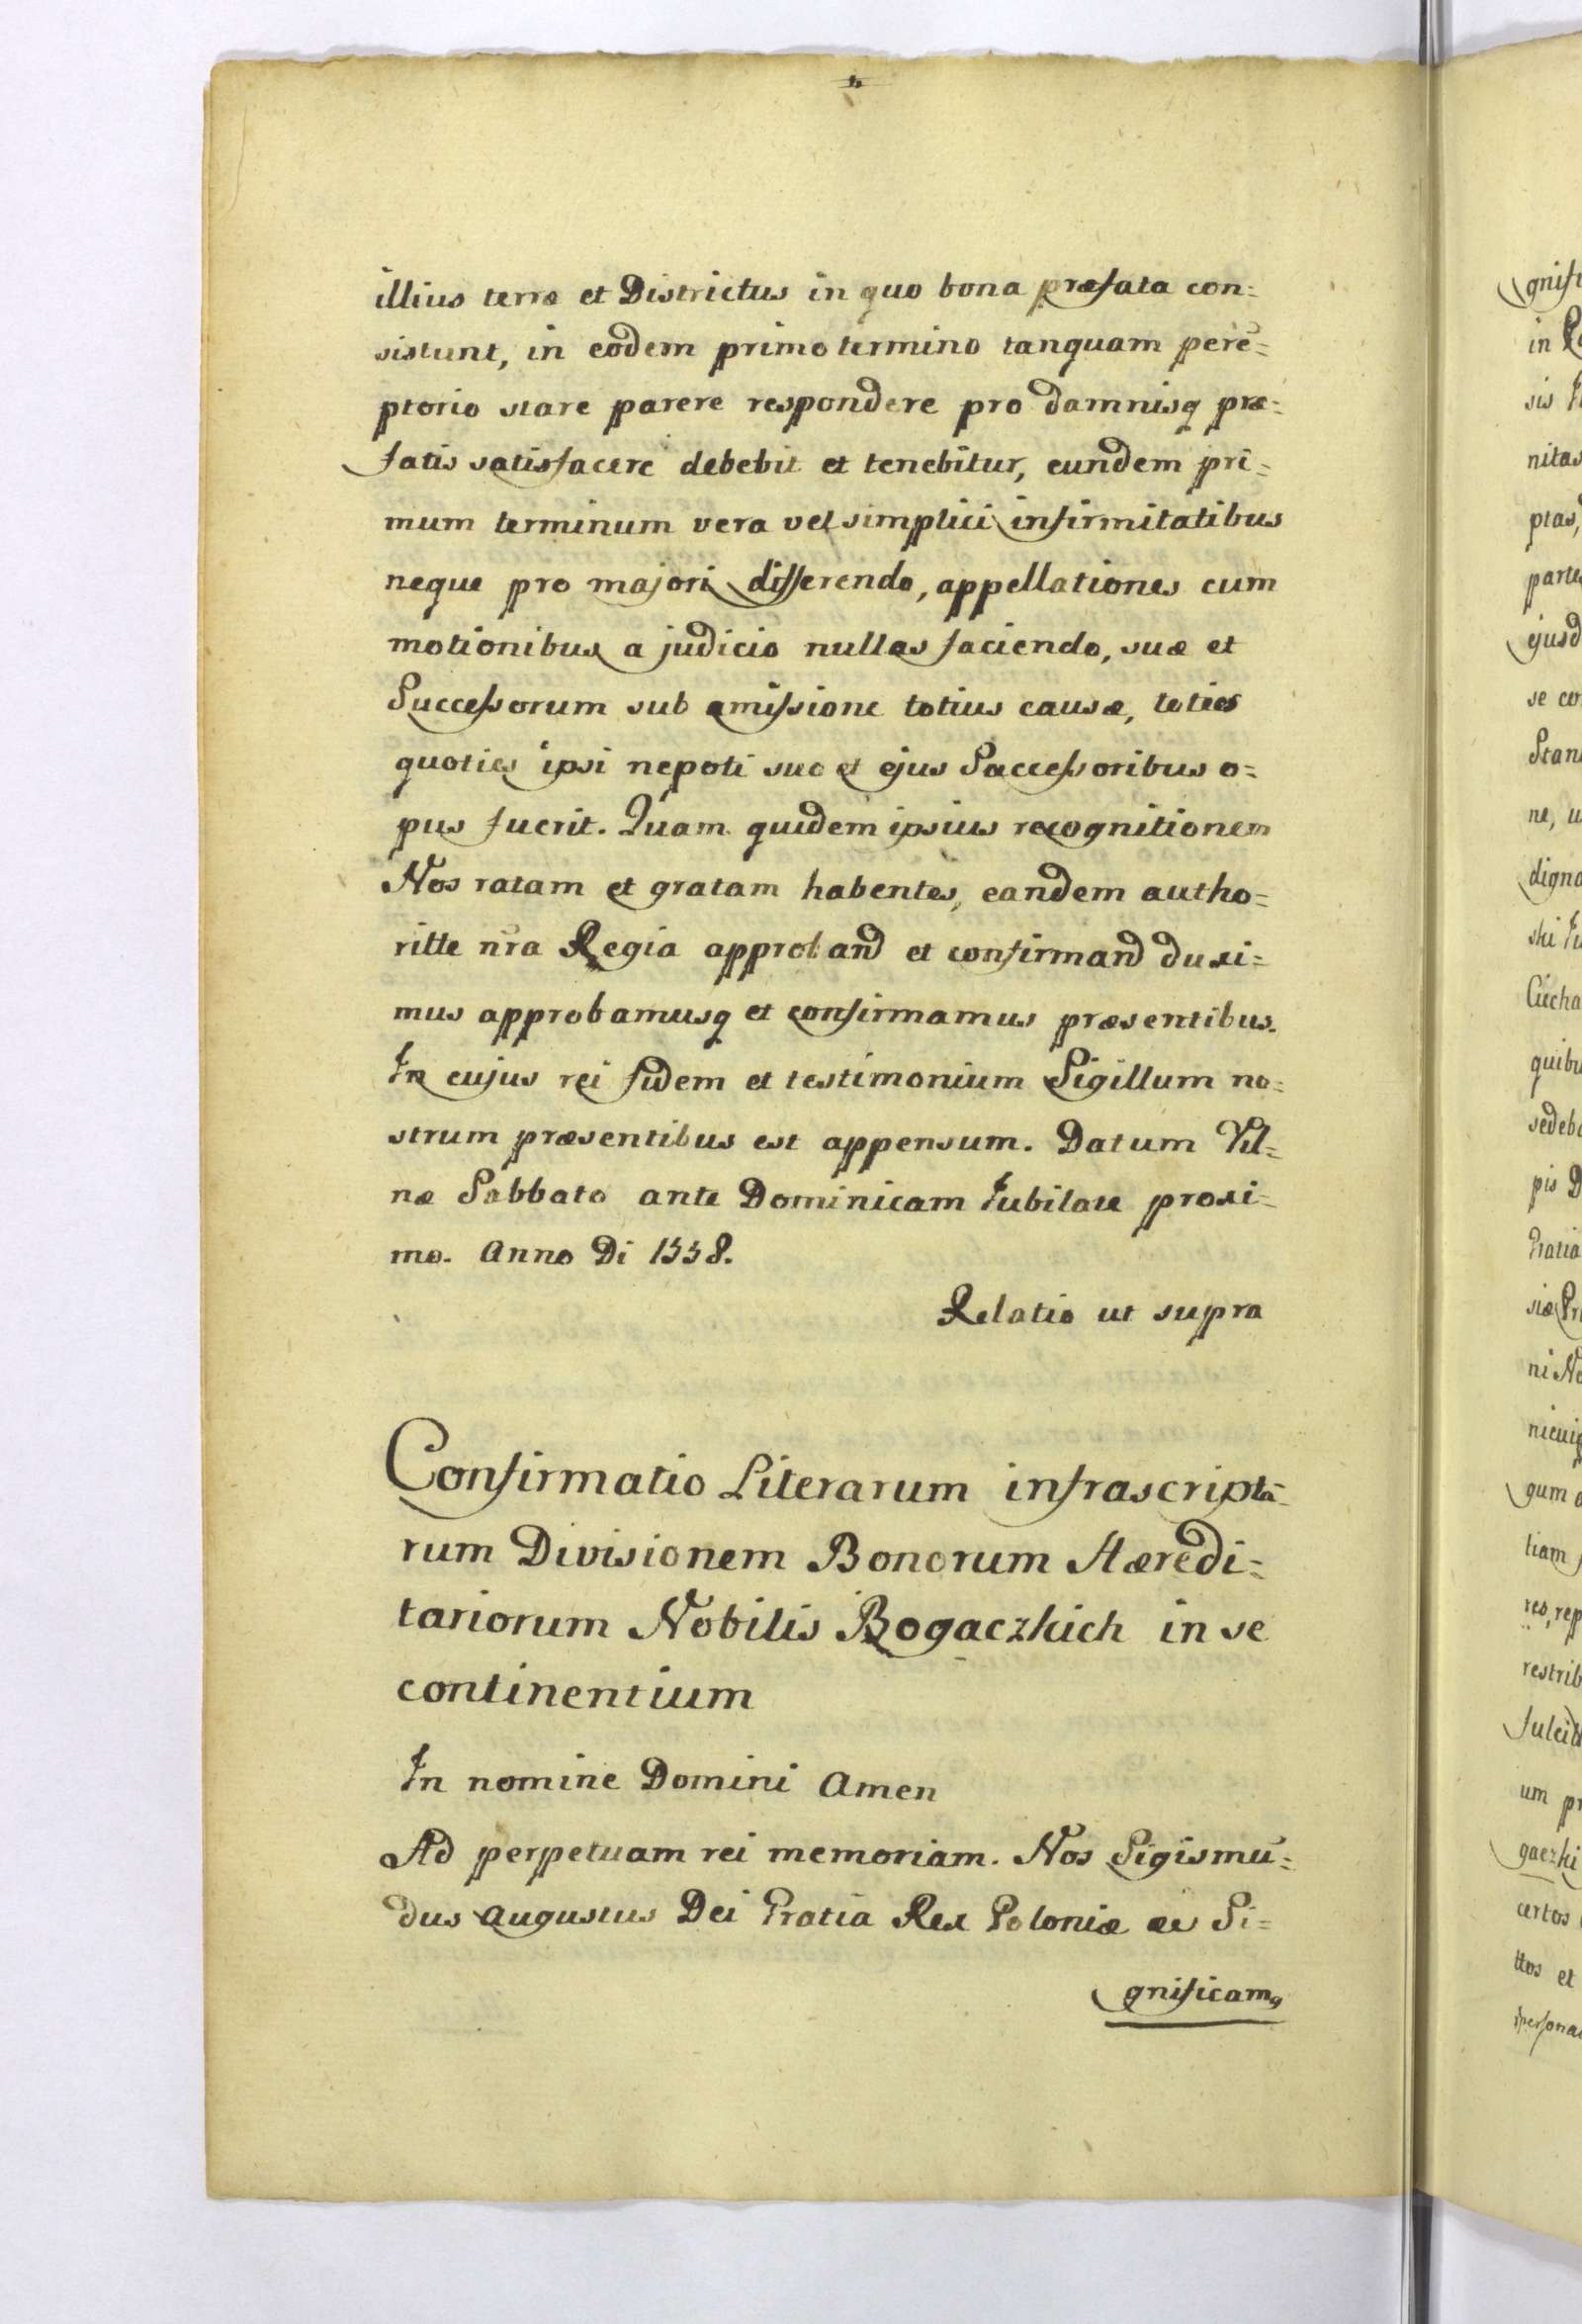 illius terræ et Districtus in quo bona præfata con=
sistunt, in eodem primo termino tanquam perē=
ptorio stare parere respondere pro damnisq præ=
fatis satisfacere debebit et tenebitur, eundem pri=
mum terminum vera vel simplici infirmitatibus
neque pro majori differendo, appellationes cum
motionibus a judicio nullas faciendo, suæ et
Successorum sub amissione totius causæ, toties
quoties ipsi nepoti suo et ejus Successoribus o=
pus fuerit. Quam quidem ipsius recognitionem
Nos ratam et gratam habentes, eandem autho=
ritte nra Regia approband et confirmand duxi=
mus approbamusq et confirmamus præsentibus.
In cujus rei fidem et testimonium Sigillum no=
strum præsentibus est appensum. Datum Vil=
næ Sabbato ante Dominicam Jubilate proxi=
mo. Anno Di 1558.
Relatio ut supra
Confirmatio Literarum infrascriptā=
rum Divisionem Bonorum Hæredi=
tariorum Nobilis Bogaczkich in se
continentium
In nomine Domini Amen
Ad perpetuam rei memoriam. Nos Sigismū=
dus Augustus Dei Gratia Rex Poloniæ &c Si=
gnificamq
gnifi
in
sis
nitas
ptas,
partes
ejusd
se co
Stan
ne, u
digno
ski
Cicha
quibu
sedeb
pis D
Gratia
siæ Pr
ni No
nicuiq
gum
tiam
res, rep
restrib
fulcit
um pr
gaczki
certos
ttos et
persona